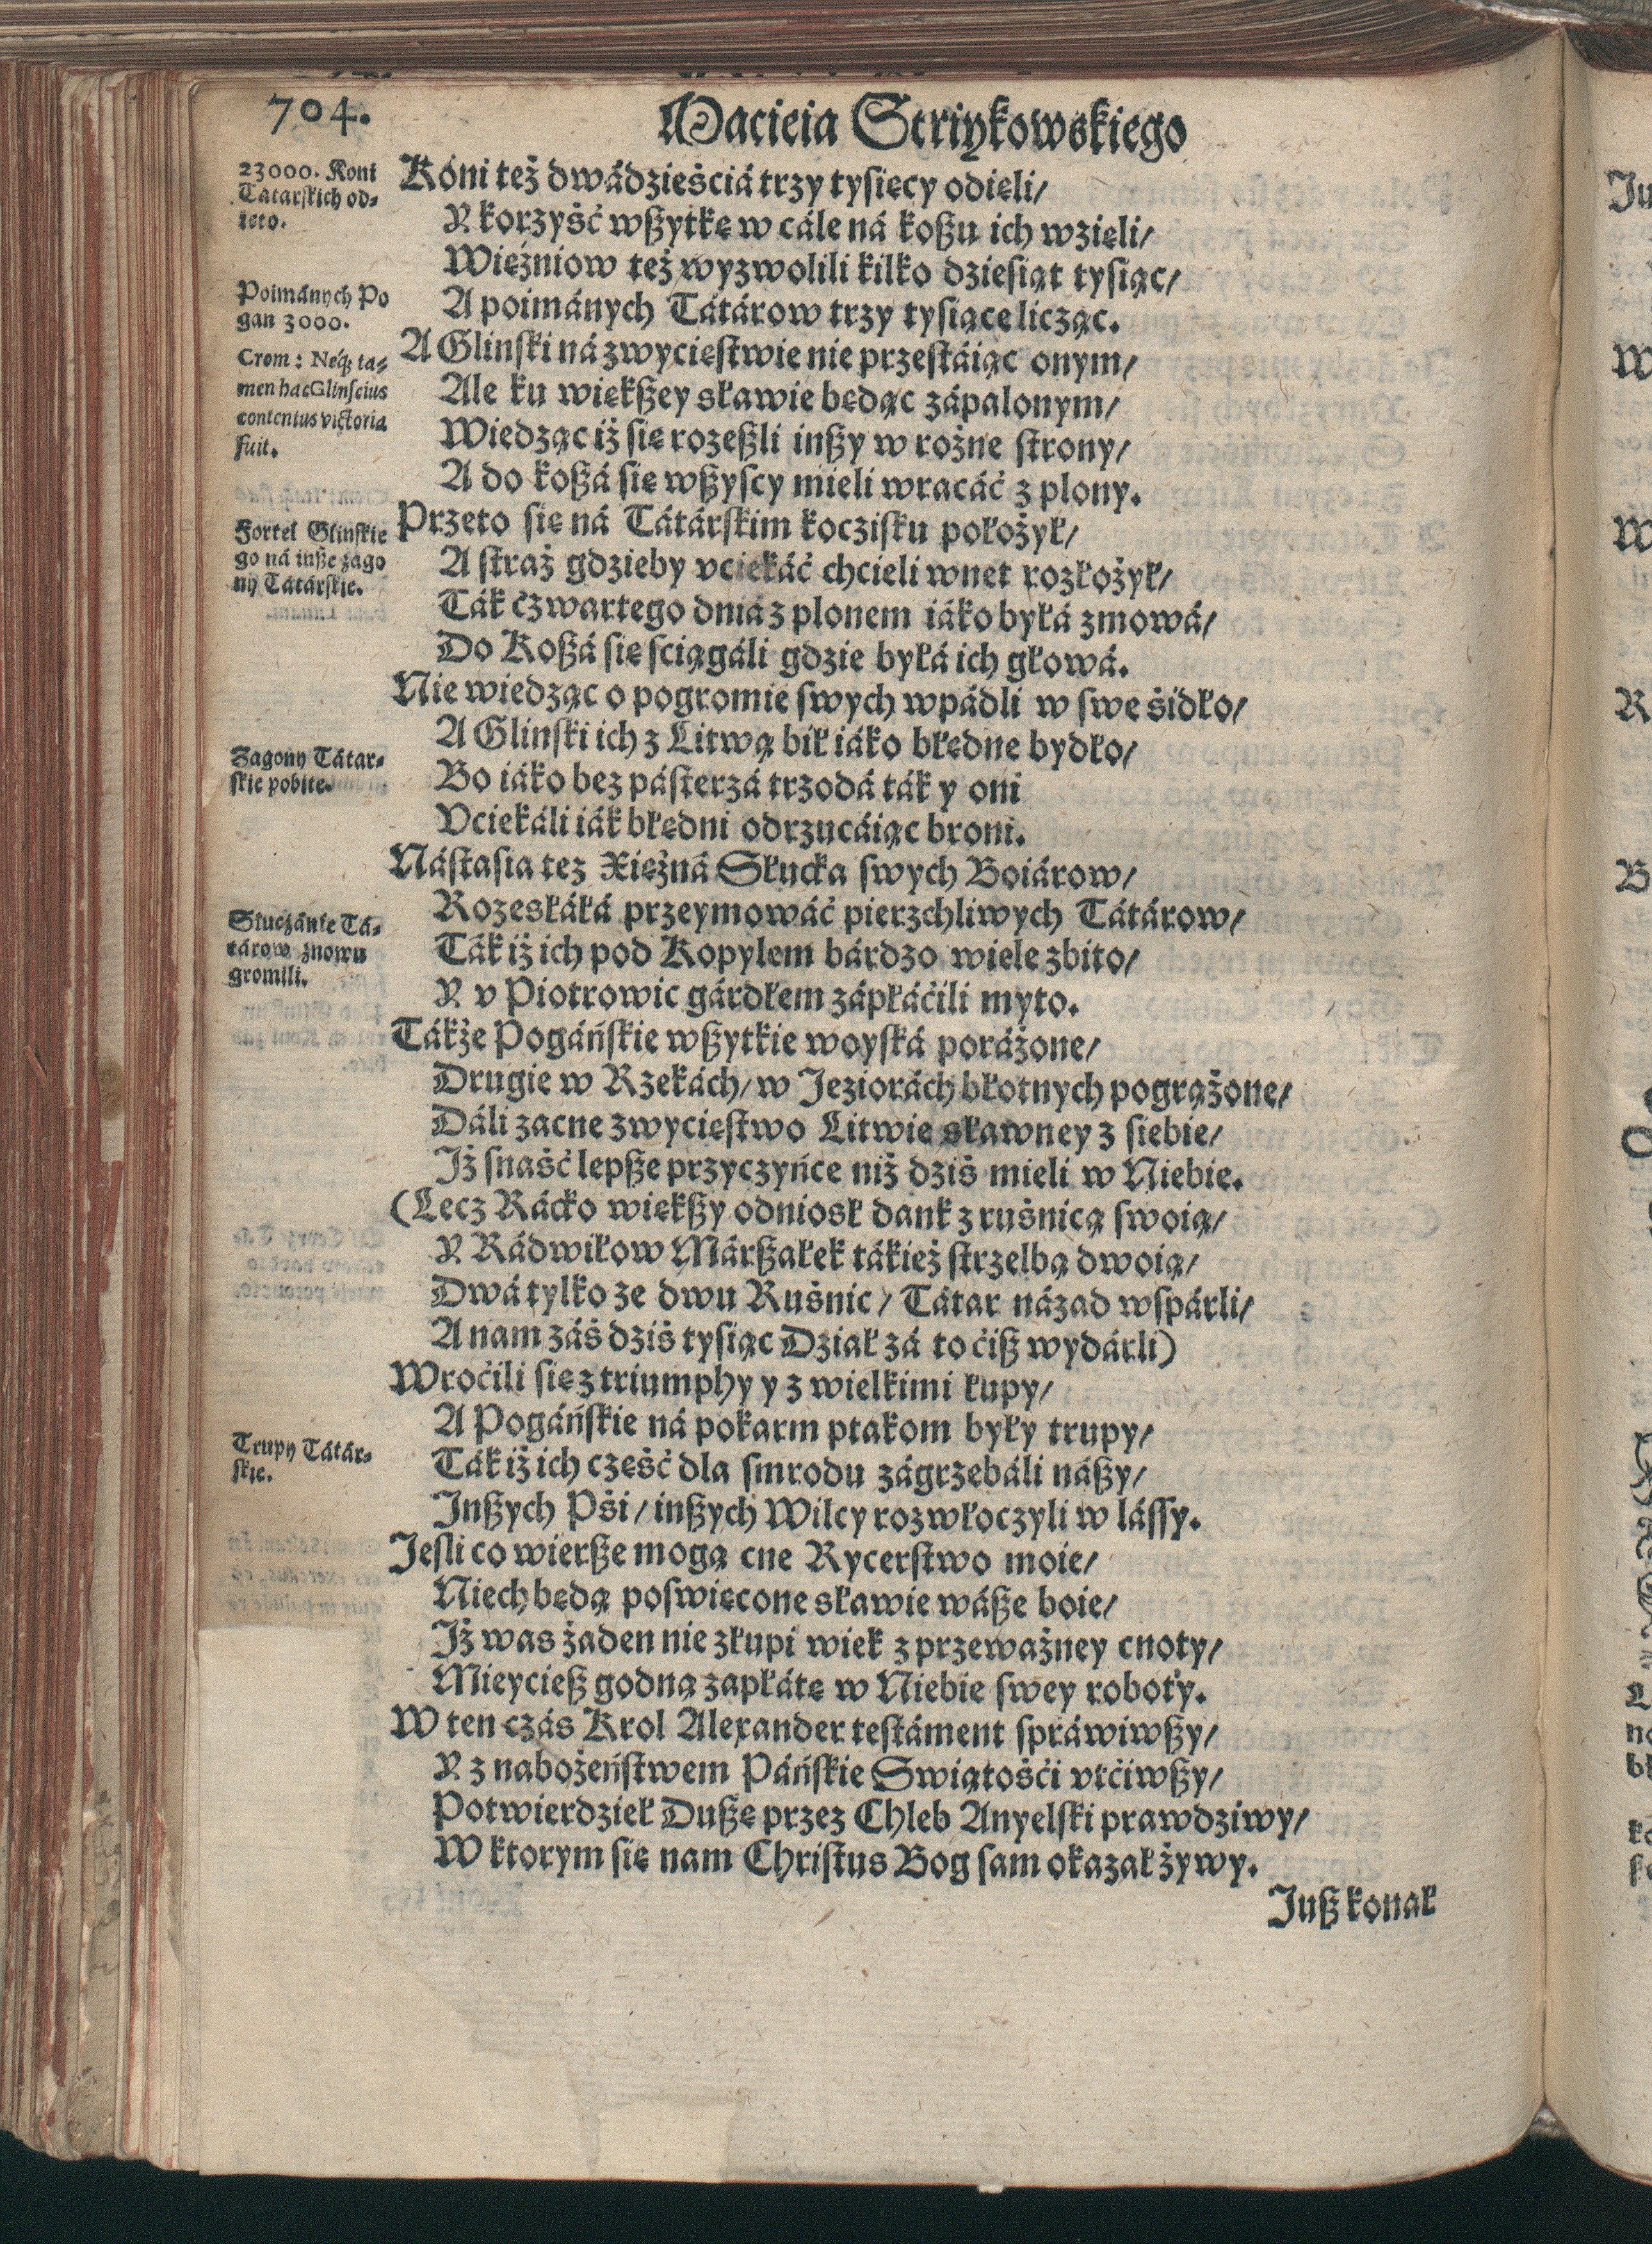 704.
Macieia Striykowskiego
23000. Koni
Tátarſkich od⸗
ięto.
Kóni też dwádzieśćiá trzy tyſięcy odięli/
Y korzyść wßytkę w cále ná koßu ich wzięli/
Więźniow też wyzwolili kilko dzieſiąt tyſiąc/
Poimánych Po
gan 3000.
A poimánych Tátárow trzy tyſiące licząc.
Crom: Neq; ta⸗
men hac Glinſcius
contentus victoria
fuit.
A Glinſki ná zwycięſtwie nie przeſtáiąc onym/
Ale ku więkßey sławie będąc zápalonym/
Wiedząc iż ſię rozeßli inßy w rożne ſtrony/
A do koßá ſię wßyſcy mieli wracáć z plony.
Fortel Glinſkie
go ná inße zago
ny Tátárſkie.
Przeto ſię ná Tátárſkim kocziſku położył/
A ſtraż gdzieby vciekáć chcieli wnet rozłożył/
Ták czwartego dniá z plonem iáko byłá zmowá/
Do Koßá ſię ſciągáli gdzie byłá ich głowá.
Nie wiedząc o pogromie ſwych wpádli w ſwe śidło/
Zagony Tátar⸗
ſkie pobite.
A Glinſki ich z Litwą bił iáko błędne bydło/
Bo iáko bez páſterzá trzodá ták y oni
Vciekáli iák błędni odrzucáiąc broni.
Náſtaſia tez Xiężná Słucka ſwych Boiárow/
Słuczánie Tá⸗
tárow znowu
gromili.
Rozesłáłá przeymowáć pierzchliwych Tátárow/
Ták iż ich pod Kopylem bárdzo wiele zbito/
Y v Piotrowic gárdłem zápłáćili myto.
Tákże Pogáńſkie wßytkie woyſká poráżone/
Drugie w Rzekách/ w Jeziorách błotnych pogrążone/
Dáli zacne zwycięſtwo Litwie sławney z ſiebie/
Jż ſnaść lepße przyczyńce niż dziś mieli w Niebie.
(Lecz Rácko więkßy odniosł dank z ruśnicą ſwoią/
Y Rádwiłow Márßałek tákież ſtrzelbą dwoią/
Dwá tylko ze dwu Ruśnic/ Tátar názad wſpárli/
A nam záś dziś tyſiąc Dział zá to ćiß wydárli)
Wroćili ſię z triumphy y z wielkimi łupy/
A Pogáńſkie ná pokarm ptakom były trupy/
Trupy Tátár⸗
ſkie.
Ták iż ich część dla ſmrodu zágrzebáli náßy/
Jnßych Pśi/ inßych Wilcy rozwłoczyli w láſſy.
Jeſli co wierße mogą cne Rycerſtwo moie/
Niech będą poſwięcone sławie wáße boie/
Jż was żaden nie złupi wiek z przeważney cnoty/
Mieycieß godną zapłátę w Niebie ſwey roboty.
W ten czás Krol Alexander teſtáment ſpráwiwßy/
Y z nabożeńſtwem Páńſkie Swiątośći vtćiwßy/
Potwierdził Dußę przez Chleb Anyelſki prawdziwy/
W ktorym ſię nam Chriſtus Bog ſam okazał żywy.
Juß konał